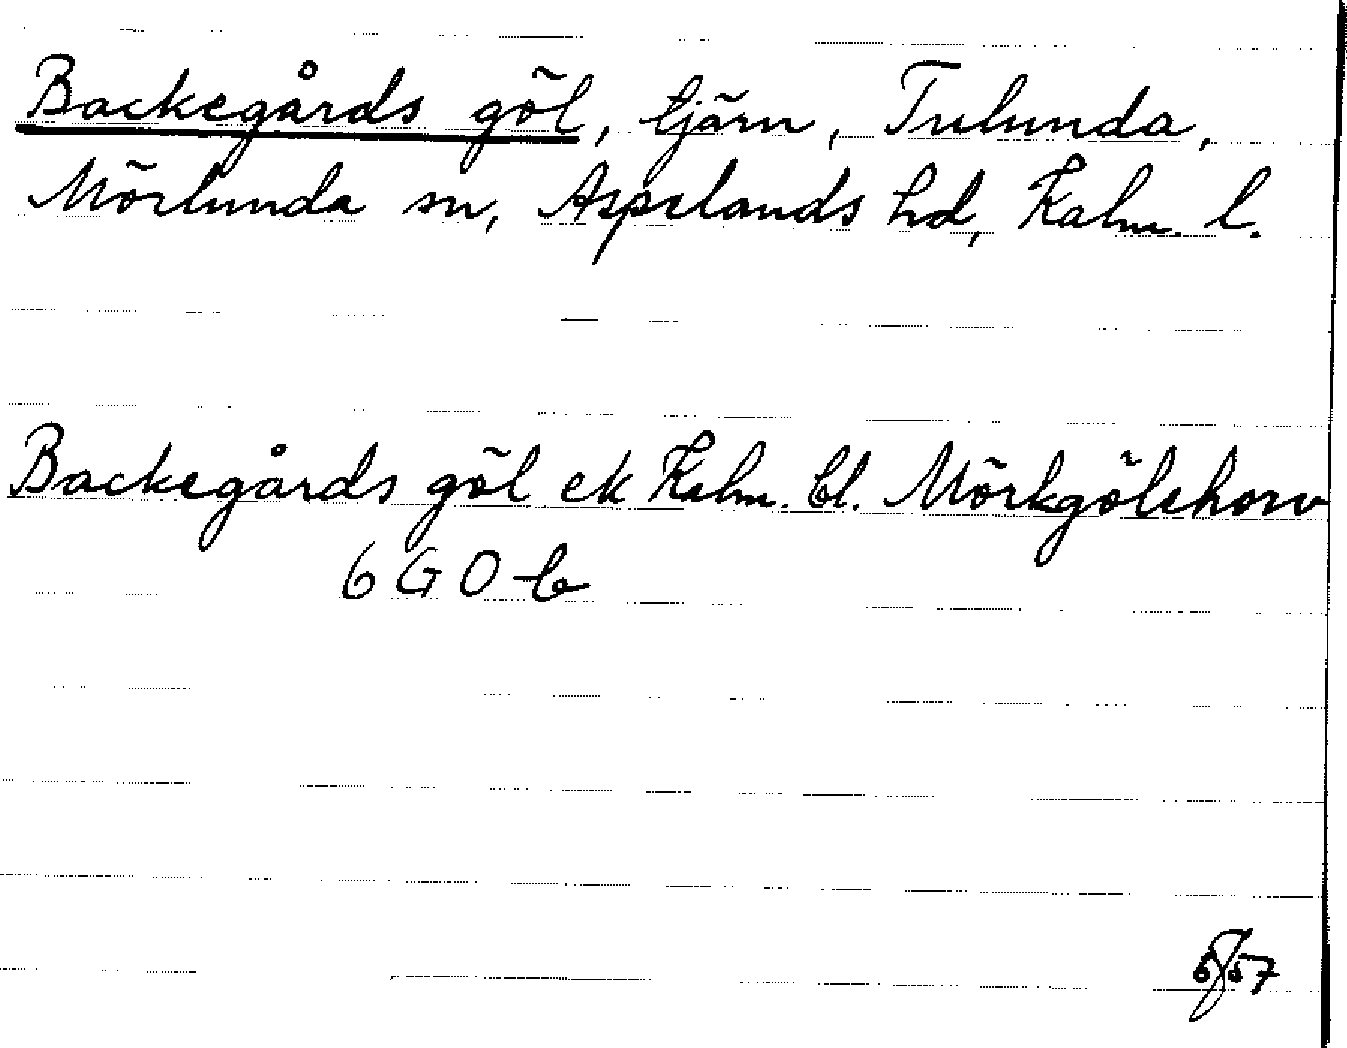 Backegårds göl, tjärn, Tulunda,
Mörlunda sn, Aspelands hd, Kalm. l.
Backegårds göl ek Kalm. bl. Mörkgölehorv
6 G 0 b